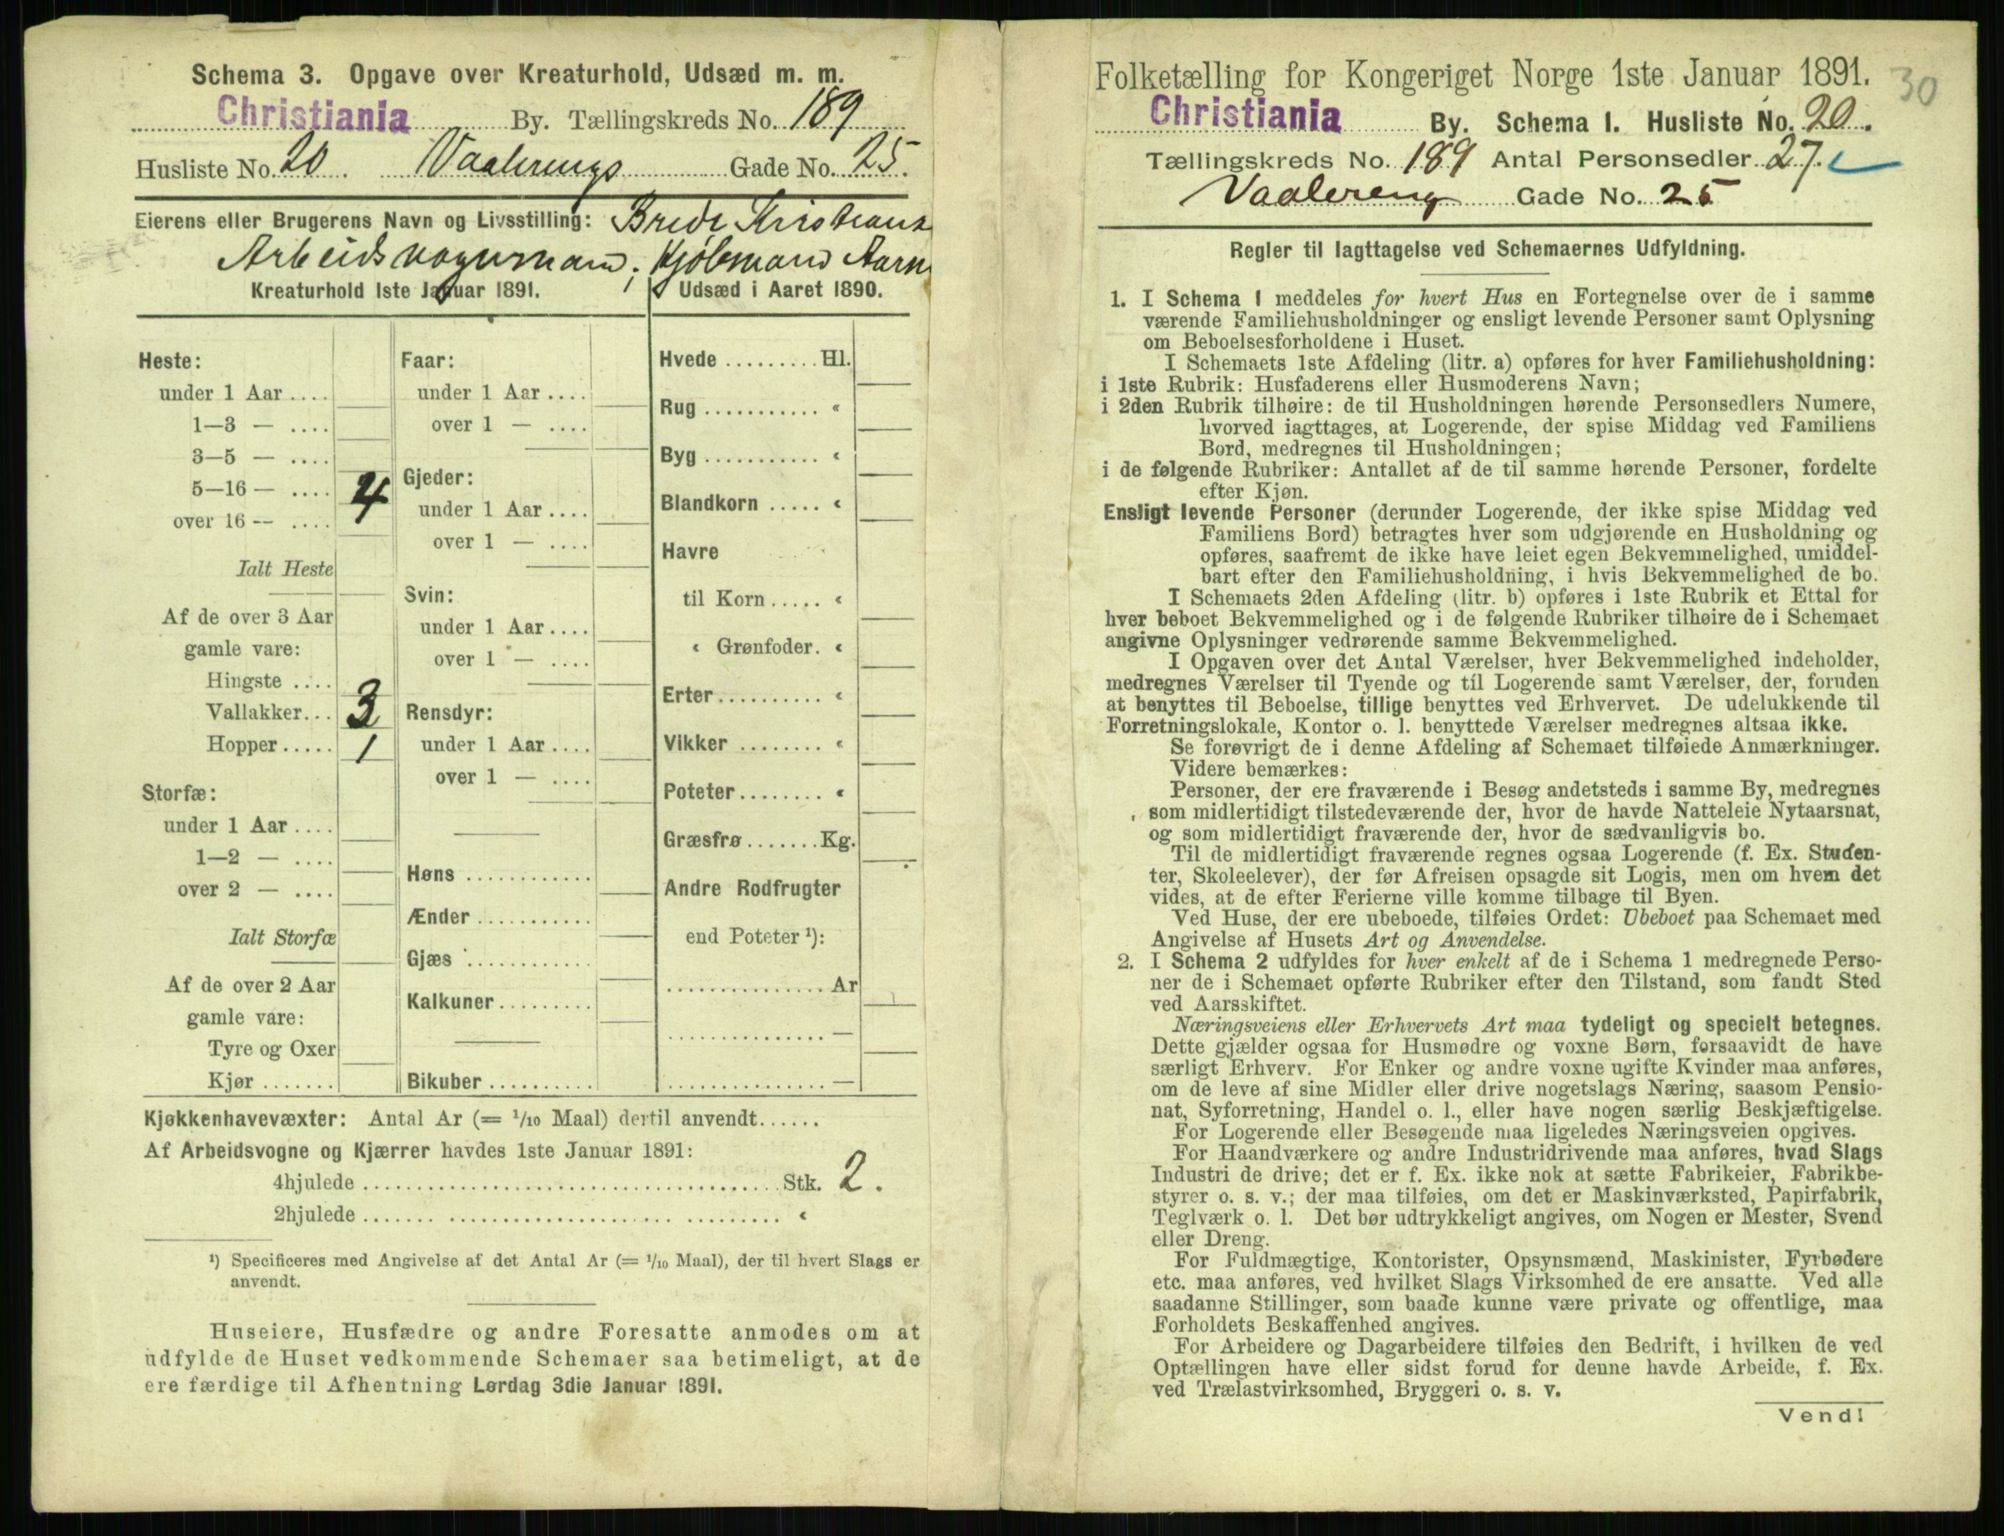 Schema 3. Opgave over Kreaturhold, Udsæd m. m.
Christiania By. Tællingskreds No. 189
Husliste No. 20. Vaalerengs Gade No. 25.
Eierens eller Brugerens Navn og Livsstilling: Brede Kristians
Arbeidsvognmand; Kjøbmand Aarn
Kreaturhold 1ste Januar 1891.
Heste:
under 1 Aar ....
1—3 — ....
3—5 — ....
5—16 — .... 4
over 16 — ....
Ialt Heste
Af de over 3 Aar
gamle vare:
Hingste ....
Vallakker... 3
Hopper..... 1
Storfæ:
under 1 Aar ....
1—2 — ....
over 2 — ....
Ialt Storfæ
Af de over 2 Aar
gamle vare:
Tyre og Oxer
Kjør .......
Faar:
under 1 Aar ....
over 1 — ....
Gjeder:
under 1 Aar ....
over 1 — ....
Svin:
under 1 Aar ....
over 1 — ....
Rensdyr:
under 1 Aar ....
over 1 — ....
Høns ............
Ænder ...........
Gjæs ............
Kalkuner.........
Bikuber ..........
Udsæd i Aaret 1890.
Hvede ......... Hl.
Rug ........... «
Byg ........... «
Blandkorn ..... «
Havre
til Korn ..... «
« Grønfoder. «
Erter.......... «
Vikker ........ «
Poteter ........ «
Græsfrø ....... Kg.
Andre Rodfrugter
end Poteter ¹):
................ Ar
................ —
................ —
Kjøkkenhavevæxter: Antal Ar (= 1/10 Maal) dertil anvendt......
Af Arbeidsvogne og Kjærrer havdes 1ste Januar 1891:
4hjulede ........................................ Stk. 2.
2hjulede ........................................ «
¹) Specificeres med Angivelse af det Antal Ar (= 1/10 Maal), der til hvert Slags er
anvendt.
Huseiere, Husfædre og andre Foresatte anmodes om at
udfylde de Huset vedkommende Schemaer saa betimeligt, at de
ere færdige til Afhentning Lørdag 3die Januar 1891.
Folketælling for Kongeriget Norge 1ste Januar 1891. 30
Christiania By. Schema 1. Husliste No. 20.
Tællingskreds No. 189 Antal Personsedler 27.
Vaalereng Gade No. 25
Regler til Iagttagelse ved Schemaernes Udfyldning.
1. I Schema 1 meddeles for hvert Hus en Fortegnelse over de i samme
værende Familiehusholdninger og ensligt levende Personer samt Oplysning
om Beboelsesforholdene i Huset.
I Schemaets 1ste Afdeling (litr. a) opføres for hver Familiehusholdning:
i 1ste Rubrik: Husfaderens eller Husmoderens Navn;
i 2den Rubrik tilhøire: de til Husholdningen hørende Personsedlers Numere,
hvorved iagttages, at Logerende, der spise Middag ved Familiens
Bord, medregnes til Husholdningen;
i de følgende Rubriker: Antallet af de til samme hørende Personer, fordelte
efter Kjøn.
Ensligt levende Personer (derunder Logerende, der ikke spise Middag ved
Familiens Bord) betragtes hver som udgjørende en Husholdning og
opføres, saafremt de ikke have leiet egen Bekvemmelighed, umiddel-
bart efter den Familiehusholdning, i hvis Bekvemmelighed de bo.
I Schemaets 2den Afdeling (litr. b) opføres i 1ste Rubrik et Ettal for
hver beboet Bekvemmelighed og i de følgende Rubriker tilhøire de i Schemaet
angivne Oplysninger vedrørende samme Bekvemmelighed.
I Opgaven over det Antal Værelser, hver Bekvemmelighed indeholder,
medregnes Værelser til Tyende og til Logerende samt Værelser, der, foruden
at benyttes til Beboelse, tillige benyttes ved Erhvervet. De udelukkende til
Forretningslokale, Kontor o. l. benyttede Værelser medregnes altsaa ikke.
Se forøvrigt de i denne Afdeling af Schemaet tilføiede Anmærkninger.
Videre bemærkes:
Personer, der ere fraværende i Besøg andetsteds i samme By, medregnes
som midlertidigt tilstedeværende der, hvor de havde Natteleie Nytaarsnat,
og som midlertidigt fraværende der, hvor de sædvanligvis bo.
Til de midlertidigt fraværende regnes ogsaa Logerende (f. Ex. Studen-
ter, Skoleelever), der før Afreisen opsagde sit Logis, men om hvem det
vides, at de efter Ferierne ville komme tilbage til Byen.
Ved Huse, der ere ubeboede, tilføies Ordet: Ubeboet paa Schemaet med
Angivelse af Husets Art og Anvendelse.
2. I Schema 2 udfyldes for hver enkelt af de i Schema 1 medregnede Perso-
ner de i Schemaet opførte Rubriker efter den Tilstand, som fandt Sted
ved Aarsskiftet.
Næringsveiens eller Erhvervets Art maa tydeligt og specielt betegnes.
Dette gjælder ogsaa for Husmødre og voxne Børn, forsaavidt de have
særligt Erhverv. For Enker og andre voxne ugifte Kvinder maa anføres,
om de leve af sine Midler eller drive nogetslags Næring, saasom Pensio-
nat, Syforretning, Handel o. l., eller have nogen særlig Beskjæftigelse.
For Logerende eller Besøgende maa ligeledes Næringsveien opgives.
For Haandværkere og andre Industridrivende maa anføres, hvad Slags
Industri de drive; det er f. Ex. ikke nok at sætte Fabrikeier, Fabrikbe-
styrer o. s. v.; der maa tilføies, om det er Maskinværksted, Papirfabrik,
Teglværk o. l. Det bør udtrykkeligt angives, om Nogen er Mester, Svend
eller Dreng.
For Fuldmægtige, Kontorister, Opsynsmænd, Maskinister, Fyrbødere
etc. maa anføres, ved hvilket Slags Virksomhed de ere ansatte. Ved alle
saadanne Stillinger, som baade kunne være private og offentlige, maa
Forholdets Beskaffenhed angives.
For Arbeidere og Dagarbeidere tilføies den Bedrift, i hvilken de ved
Optællingen have eller sidst forud for denne havde Arbeide, f. Ex.
ved Trælastvirksomhed, Bryggeri o. s. v.
Vend!